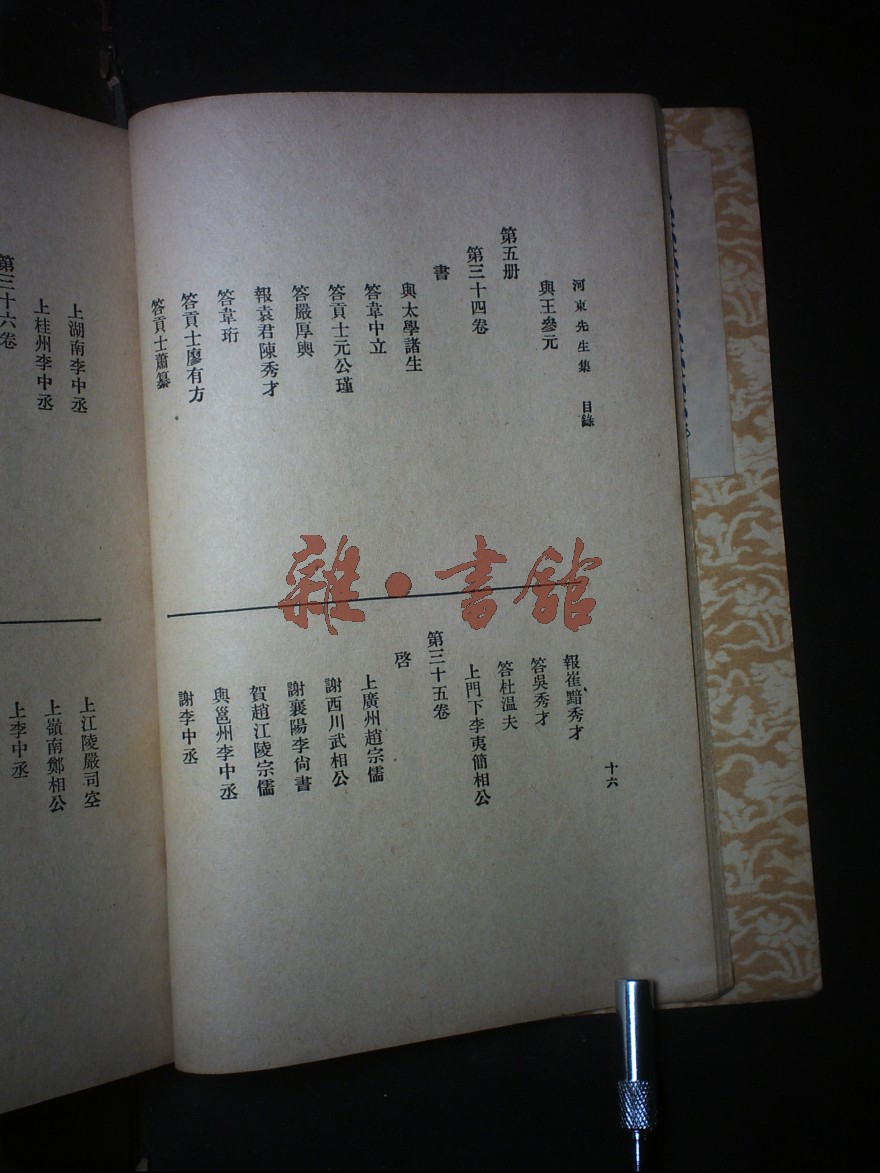 河東先生集 目錄
十六
與王參元
第五册
第三十四卷
書
與太學諸生
答韋中立
答貢士元公瑾
答嚴厚輿
報袁君陳秀才
答韋珩
答貢士廖有方
答貢士蕭纂
報崔黯秀才
答吳秀才
答杜溫夫
上門下李夷簡相公
第三十五卷
啓
上廣州趙宗儒
謝西川武相公
謝襄陽李尙書
賀趙江陵宗儒
與邕州李中丞
謝李中丞
上湖南李中丞
上桂州李中丞
第三十六卷
上江陵嚴司空
上嶺南鄭相公
上李中丞
雜·書館